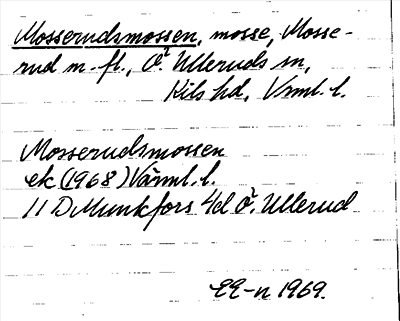 Mosserudsmossen, mosse, Mosse-
rud m. fl., Ö. Ulleruds sn,
Kils hd, Vrml. l.
Mosserudsmossen
ek (1968) Värml. l.
11 D Munkfors 4d Ö. Ullerud
EE-n 1969.